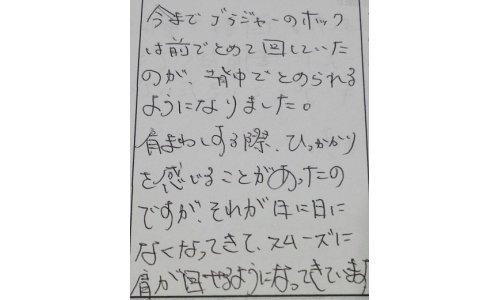 今までブラジャーのホック
は前でとめて回していた
のが、背中でとめられる
ようになりました。
肩まわしする際、ひっかかり
を感じることがあったの
ですが、それが日に日に
なくなってきて、スムーズに
肩が回せるようになってきています